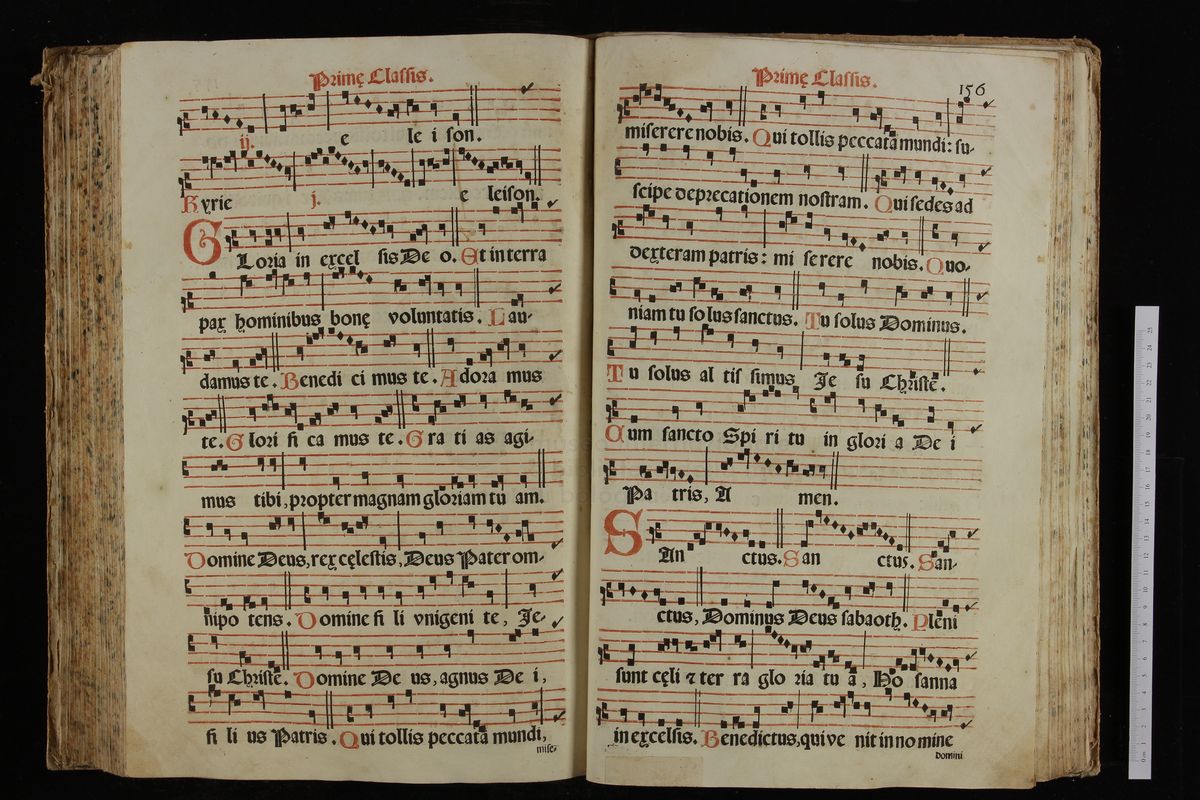 Primę Classis.
ij. e le i son.
Kyrie j. e leison.
GLoria in excel sis De o. Et in terra
pax hominibus bonę voluntatis. Lau-
damus te. Benedi ci mus te. Adora mus
te. Glori fi ca mus te. Gra ti as agi-
mus tibi, propter magnam gloriam tu am.
Domine Deus, rex cęlestis, Deus Pater om-
nipo tens. Domine fi li vnigeni te, Je-
su Christe. Domine De us, agnus De i,
fi li us Patris. Qui tollis peccata mundi,
mise-
Primę Classis.
156
miserere nobis. Qui tollis peccata mundi: su-
scipe deprecationem nostram. Qui sedes ad
dexteram patris: mi se rere nobis. Quo-
niam tu so lus sanctus. Tu solus Dominus.
Tu solus al tis simus Je su Christe.
Cum sancto Spi ri tu in glori a De i
Pa tris, A men.
SAn ctus. San ctus. San-
ctus, Dominus Deus sabaoth. Plēni
sunt cęli ⁊ ter ra glo ria tu a, Ho sanna
in excelsis. Benedictus, qui ve nit in no mine
Domini